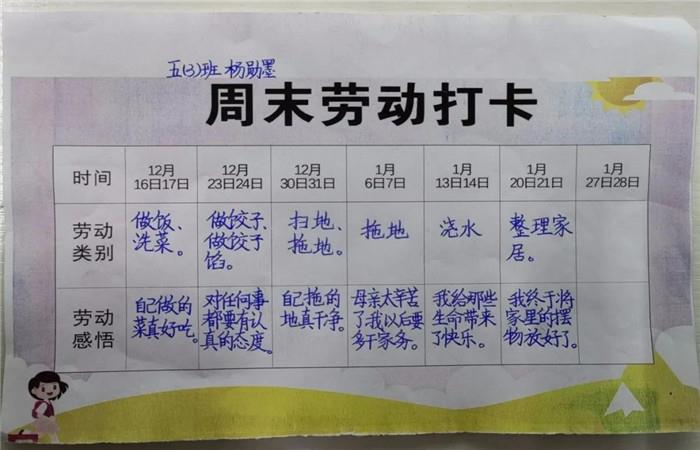 五(3)班 杨勋墨
周末劳动打卡
时间
12月
16日17日
12月
23日24日
12月
30日31日
1月
6日7日
1月
13日14日
1月
20日21日
1月
27日28日
劳动
类别
做饭、
洗菜。
做饺子、
做饺子
馅。
扫地、
拖地。
拖地
浇水
整理家
居。
劳动
感悟
自己做的
菜真好吃。
对任何事
都要有认
真的态度。
自己拖的
地真干净。
母亲太辛苦
了我以后要
多干家务。
我给那些
生命带来
了快乐。
我终于将
家里的摆
物放好了。